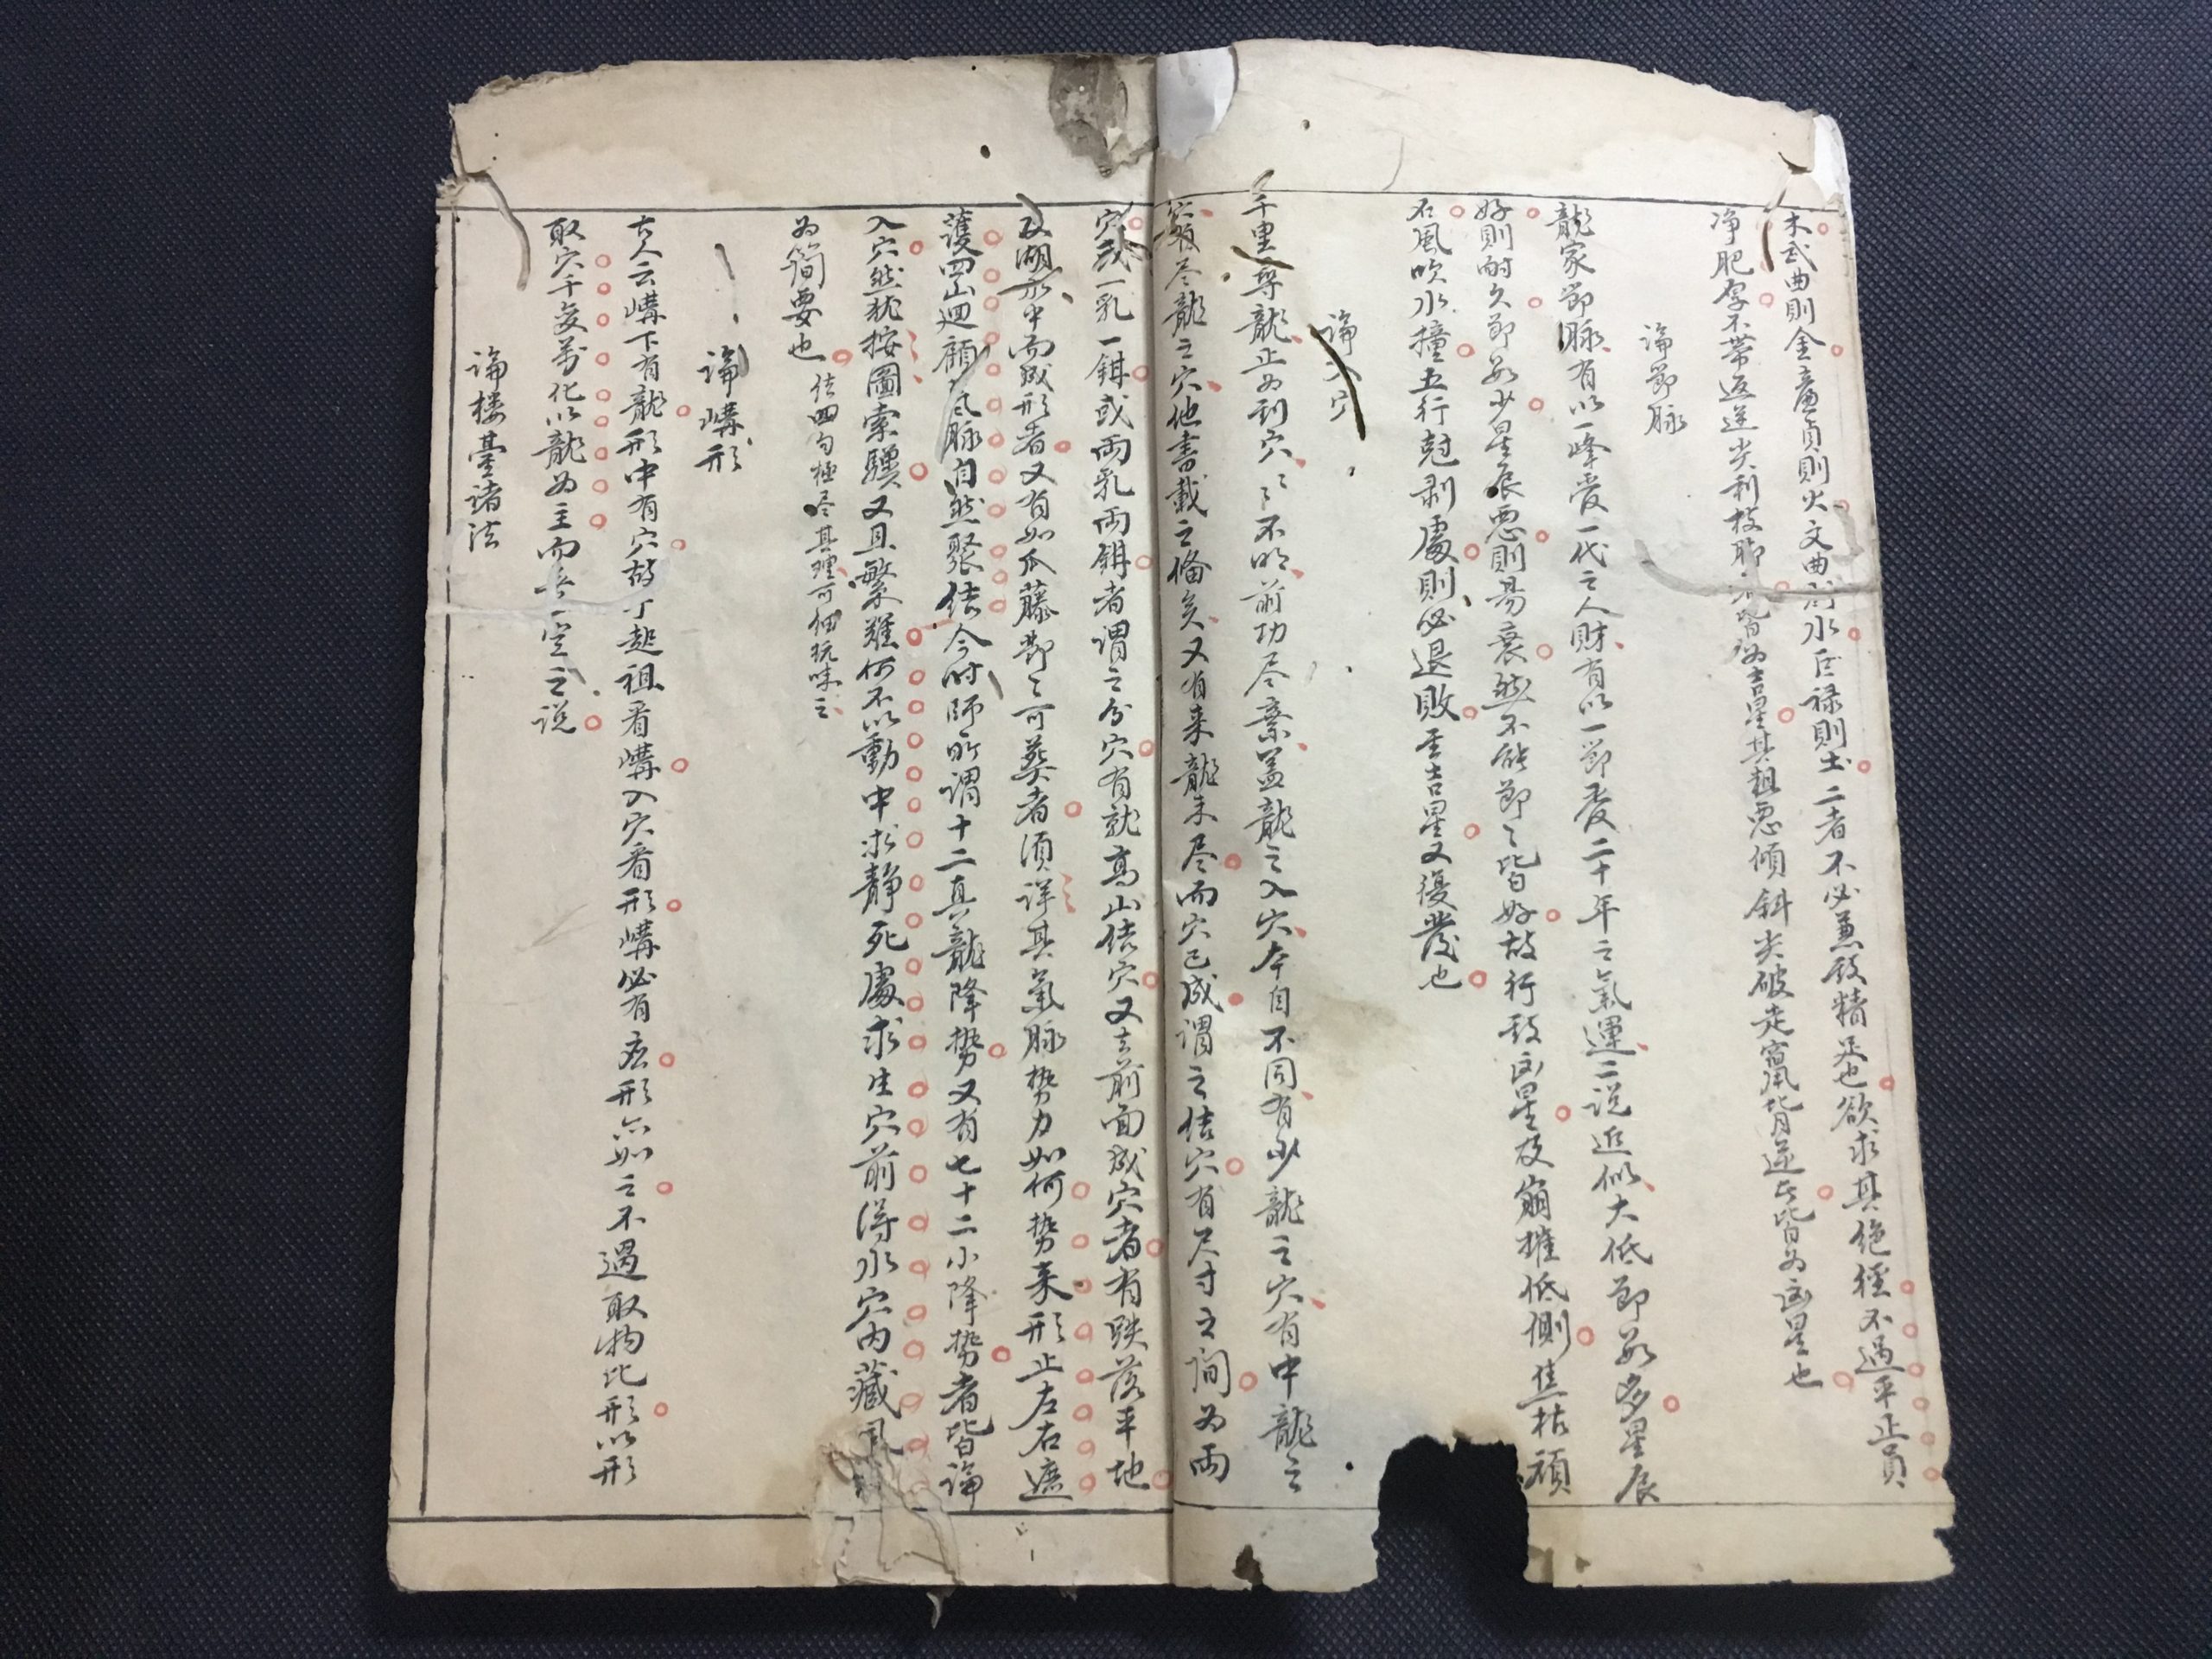 木武曲則金廉貞則火文曲則水巨祿則土二者不必兼啟精泛也欲求其绝徑不過平正員
净肥厚不帶返逆尖利枝脚皆為吉星其粗恶傾斜尖破走竄背逆皆為凶星也
論節脉
龍家節脉有以一峰爱一代之人財有以一節爱二十年之氣運二说近似大低節數多星辰
好則耐久節數少星辰恶則易衰然不能節〻皆好故行致凶星及崩摧低側焦枯頑
石風吹水撞五行尅剥處則必退敗至吉星又復發也
論入穴
千里尋龍止为到穴〻不明前功尽棄盖龍之入穴本自不同有少龍之穴有中龍之
穴有尽龍之穴他書載之俻矣又有来龍未尽而穴已成謂之结穴有尺寸之间为兩
穴或一乳一鉗或兩乳兩鉗者謂之分穴有就高山结穴又去前面成穴者有跌落平地
及湖水中而成形者又有如瓜藤節〻可葬者須详其氣脉势力如何势来形止左右遮
護四山迴顧風脉自然聚结今時師所謂十二真龍降势又有七十二小降势者皆論
入穴然犹按圖索驥又且繁難何不以動中求静死處求生穴前得水穴内藏風
为简要也 结四句極尽其理可細玩味之
論媾形
古人云媾下有龍形中有穴故下起祖看媾入穴看形媾必有应形亦如之不過取物比形以形
取穴千变萬化以龍为主而無一定之说
論楼臺诸法